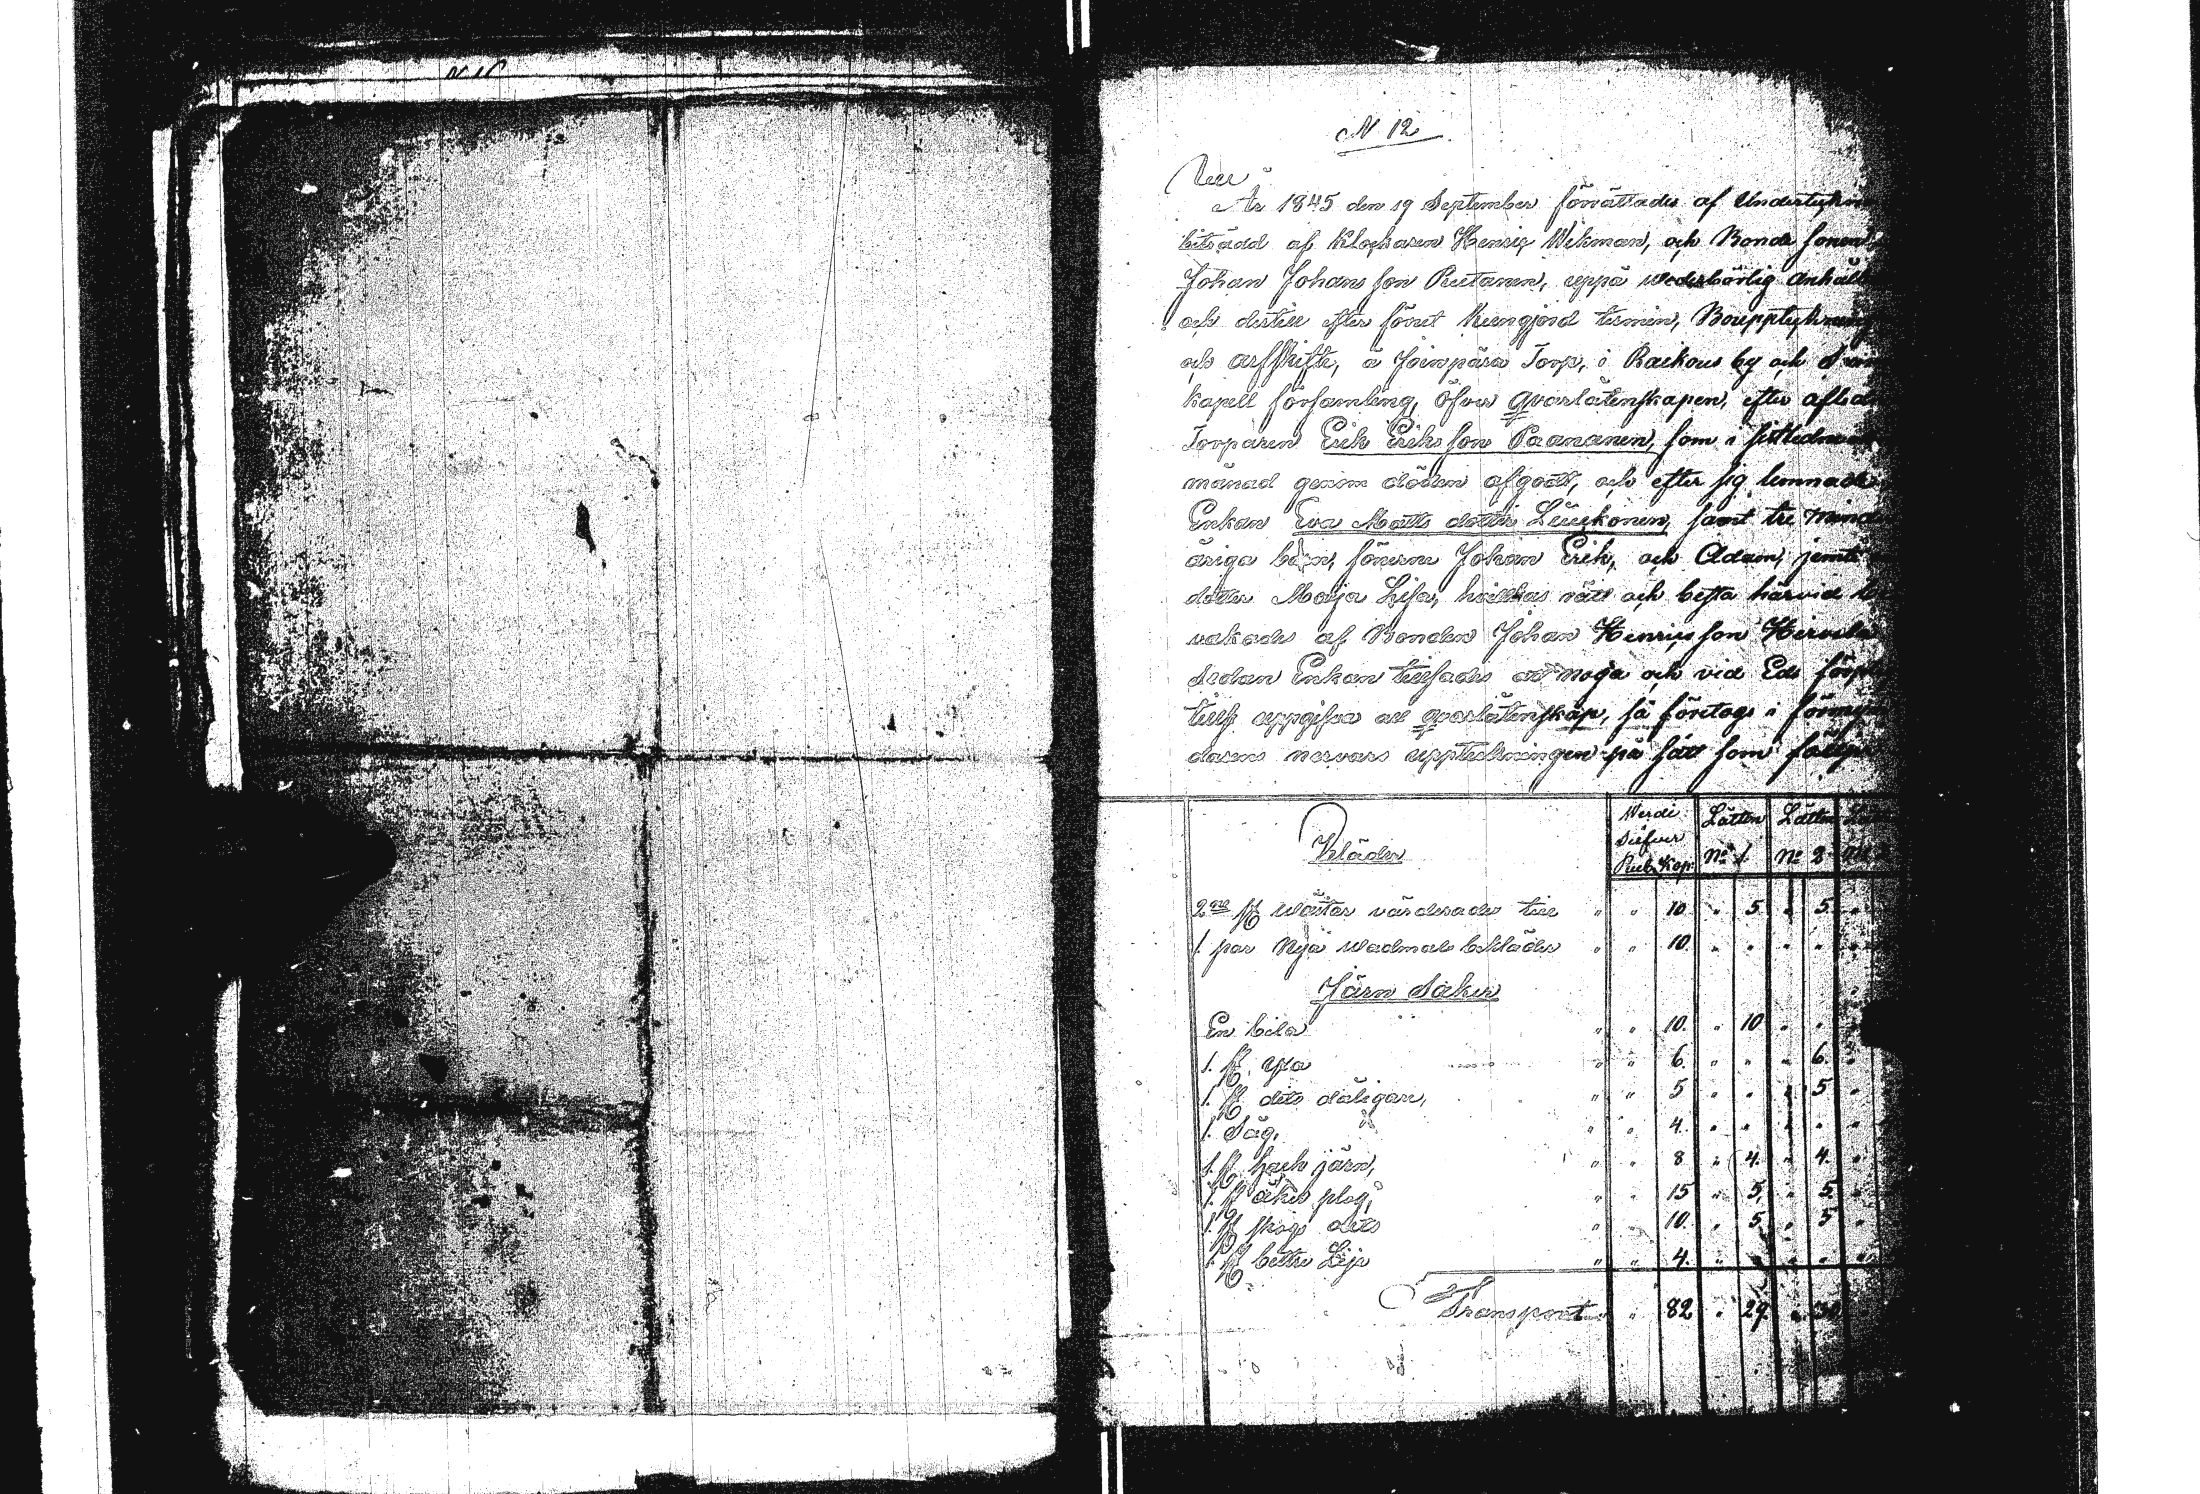 N 12
År 1845 den 19 September förrättades af Undertekn
biträdd af Klockaren Henric Wikman, och Bonde sonen
Johan Johans son Rutanen, uppå wederbörlig anhåll
och dertill efter förut kungjord termin, Bouppteckning
och arfskifte, å Torp, i by och
kapell församling, öfver qvarlåtenskapen, efter afled
Torparen Erik Eriks son Paananen, som i sistledne
månad genom döden afgådt, och efter sig lemnade
Enkan Eva Matts dotter samt tre mind
åriga barn, sönerne Johan Erik, och Adam, jemte
dotter Maja Lisa, hvilkas rätt och bästa härvid be
vakades af Bonden Johan Henrics son
Sedan Enkan tillsades att noga och vid Eds förpl
uppgifva all qvarlåtenskap, så företogs i förmyn
darens nervaro uppteckningen på sätt som följer
Kläder
Werde Silfver Rub. Kop. Lotten No 1. Lotten No 2
2ne st. wästar värderades till " " 10. " 5. " 5. "
1. par Nya wadmals bekläder " " 10. " " " " "
Järn Saker
En bila " " 10. " 10 " "
1. st. yxa " " 6. " " " 6.
1. st. dito dåligare, " " 5 " " " 5 "
1. Såg, " " 4. " " " " "
1. st. hack järn, " " 8 " 4. " 4. "
1. st. åker plog, " " 15 " 5. " 5. "
1. st. skogs dito " " 10. " 5 " 5 "
1. st. bettre Lija " " 4. " " " " "
Transport " " 82 " 29.